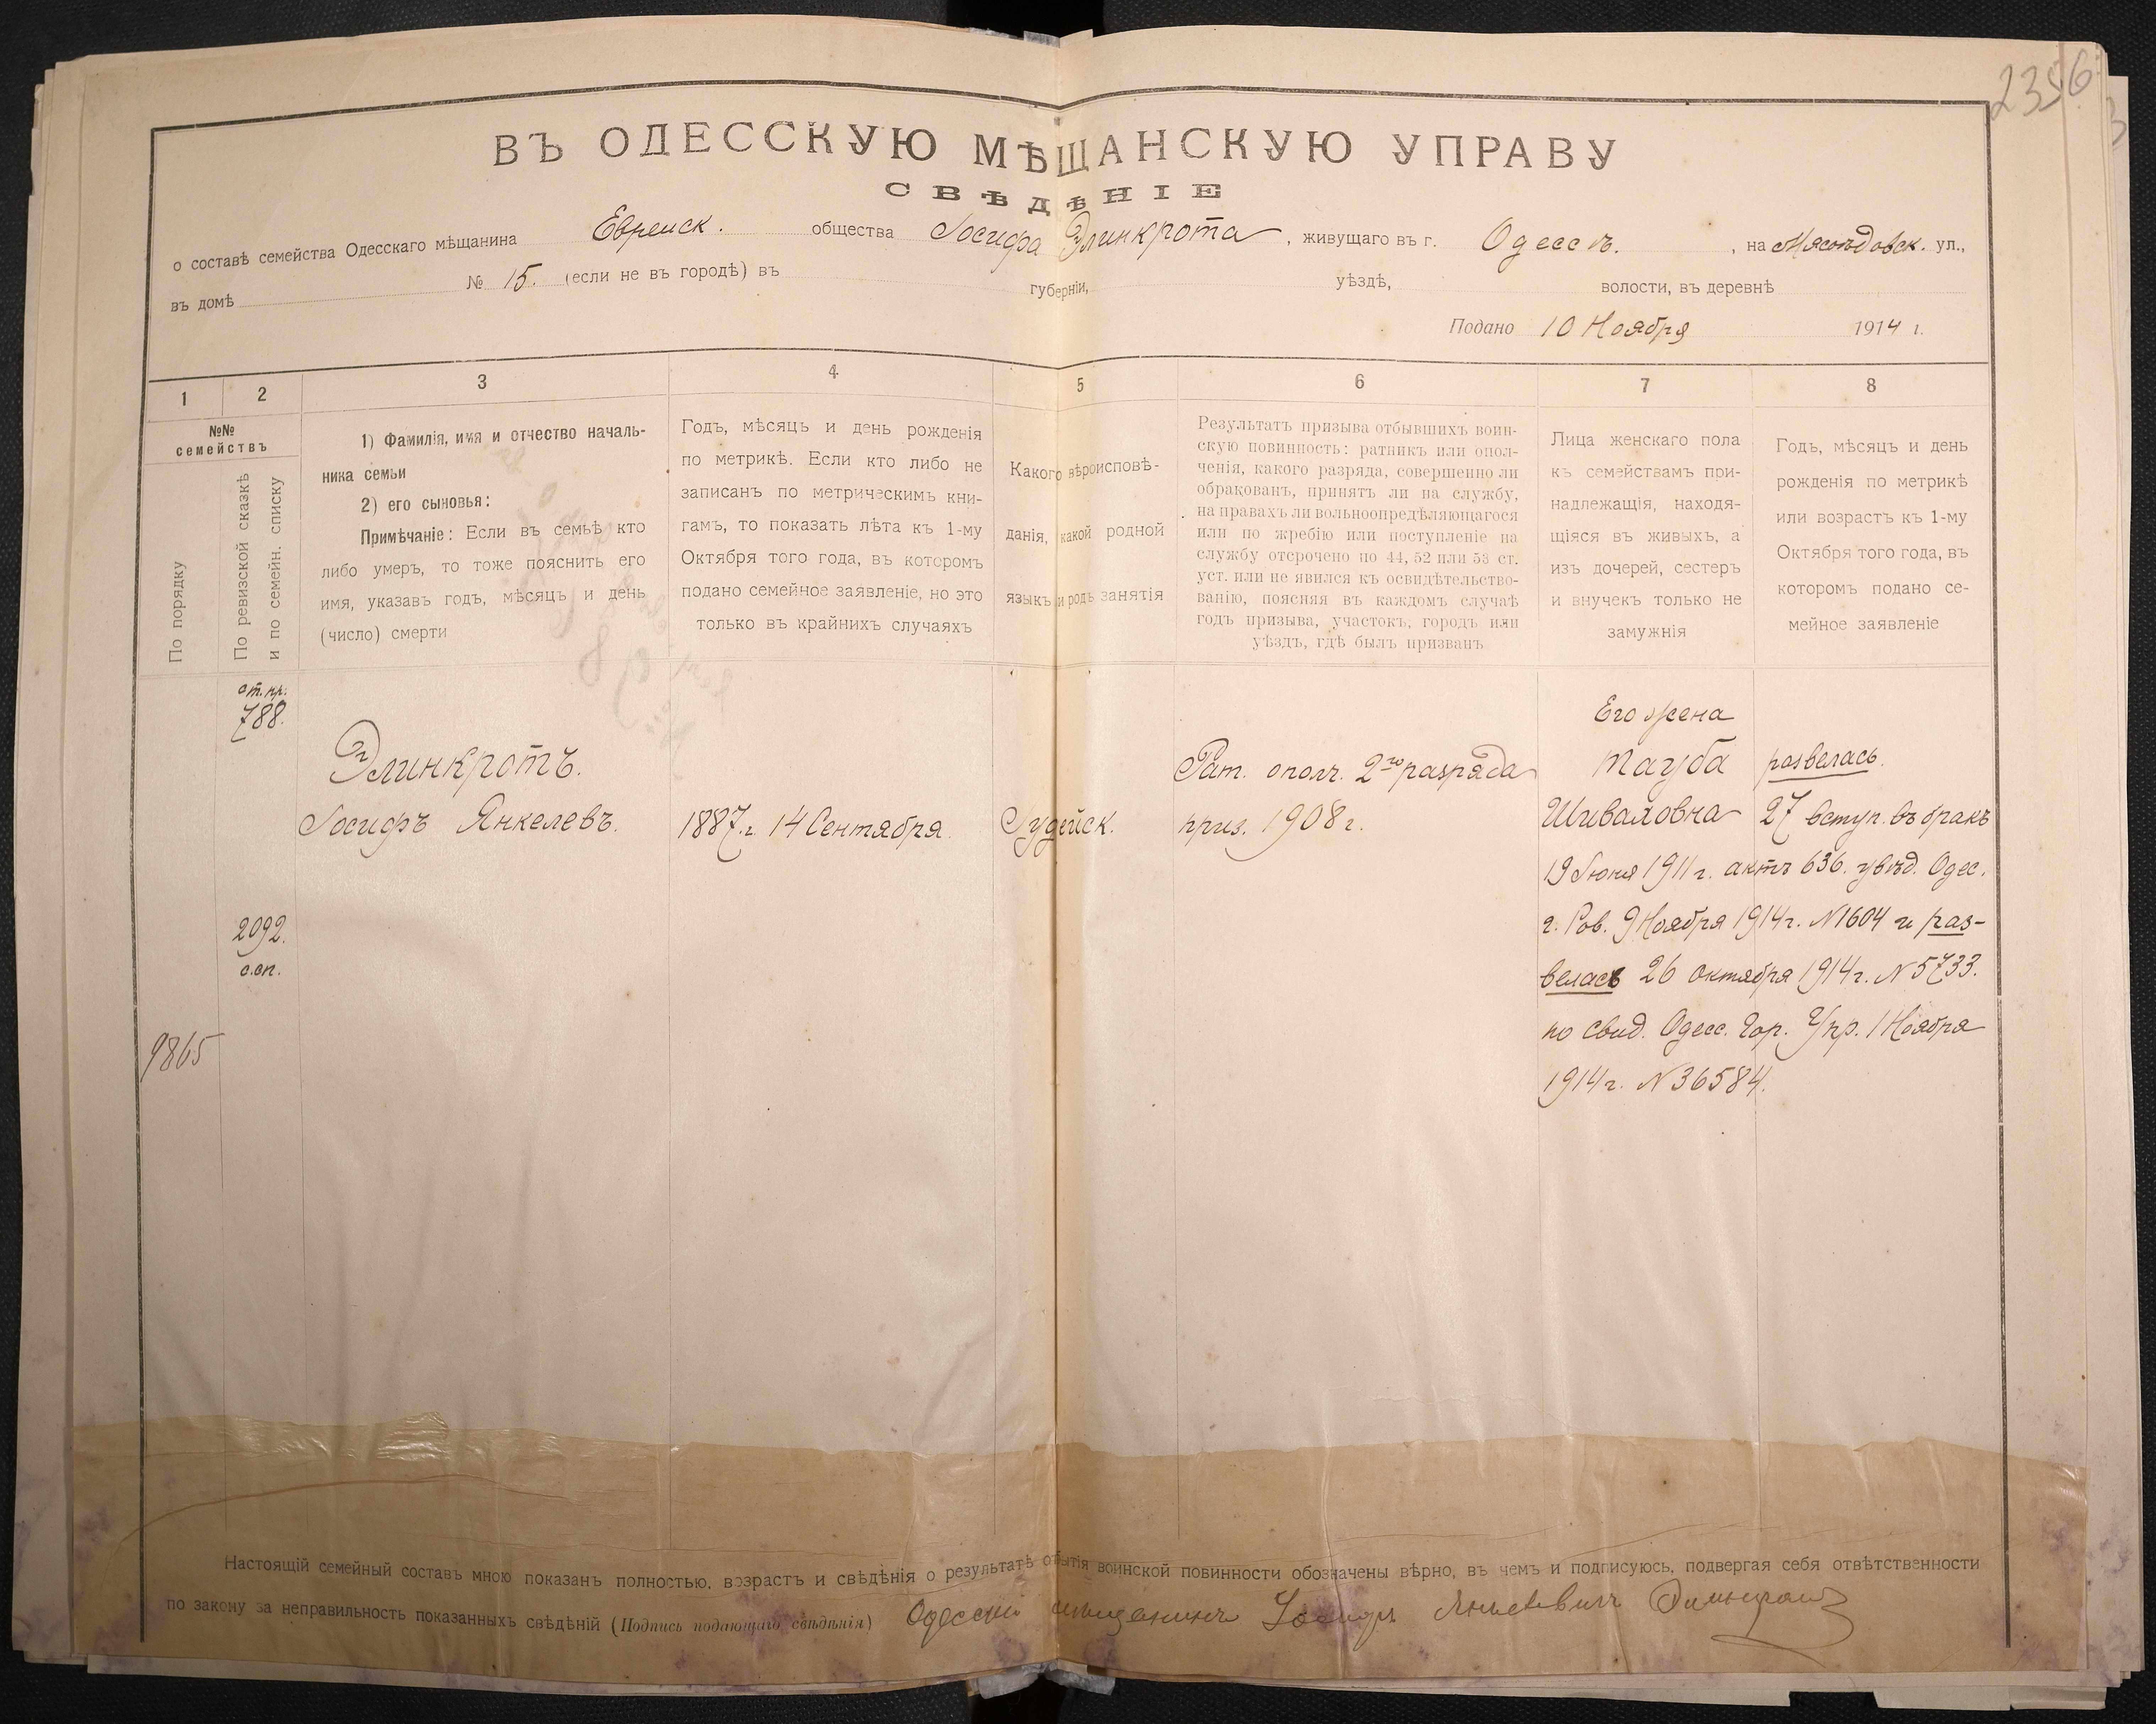 2356
ВЪ ОДЕССКУЮ МѢЩАНСКУЮ УПРАВУ
СВѢДѢНІЕ
о составѣ семейства Одесскаго мѣщанина Еврейск. общества Іосифа Элинкрота, живущаго въ г. Одессѣ., на Мясоѣдовск. ул.,
въ домѣ № 15. (если не въ городѣ) въ губерніи, уѣздѣ, волости, въ деревнѣ
Подано 10 Ноября 1914 г.
1 2 3 4 5 6 7 8
№№
семействъ
По порядку
По ревизской сказкѣ
и по семейн. списку
1) Фамилія, имя и отчество началь-
ника семьи
2) его сыновья:
Примѣчаніе: Если въ семьѣ кто
либо умеръ, то тоже пояснить его
имя, указавъ годъ, мѣсяцъ и день
(число) смерти
Годъ, мѣсяцъ и день рожденія
по метрикѣ. Если кто либо не
записанъ по метрическимъ кни-
гамъ, то показать лѣта къ 1-му
Октября того года, въ которомъ
подано семейное заявленіе, но это
только въ крайнихъ случаяхъ
Какого вѣроисповѣ-
данія, какой родной
языкъ и родъ занятія
Результатъ призыва отбывшихъ воин-
скую повинность: ратникъ или опол-
ченія, какого разряда, совершенно ли
обракованъ, принятъ ли на службу,
на правахъ ли вольноопредѣляющагося
или по жребію или поступленіе на
службу отсрочено по 44, 52 или 53 ст.
уст. или не явился къ освидѣтельство-
ванію, поясняя въ каждомъ случаѣ
годъ призыва, участокъ, городъ или
уѣздъ, гдѣ былъ призванъ
Лица женскаго пола
къ семействамъ при-
надлежащія, находя-
щіяся въ живыхъ, а
изъ дочерей, сестеръ
и внучекъ только не
замужнія
Годъ, мѣсяцъ и день
рожденія по метрикѣ
или возрастъ къ 1-му
Октября того года, въ
которомъ подано се-
мейное заявленіе
от. пр.
788.
2092.
с.сп.
9865
Элинкротъ.
Іосифъ Янкелевъ.
1887 г. 14 Сентября.
Іудейск.
Рат. ополч. 2го разряда
приз. 1908 г.
Его жена
Тауба развелась.
Шиваловна 27 вступ. въ бракъ
19 Іюня 1911 г. актъ 636. увѣд. Одес.
г. Рав. 9 Ноября 1914 г. N 1604 и раз-
велась 26 октября 1914 г. N 5733.
по свид. Одесс. Гор. Упр. 1 Ноября
1914 г. N 36584.
Настоящій семейный составъ мною показанъ полностью, возрастъ и свѣдѣнія о результатѣ отбытія воинской повинности обозначены вѣрно, въ чемъ и подписуюсь, подвергая себя отвѣтственности
по закону за неправильность показанныхъ свѣдѣній (Подпись подающаго свѣдѣнія) Одесскій мещанинъ Іосифъ Янкелевичъ